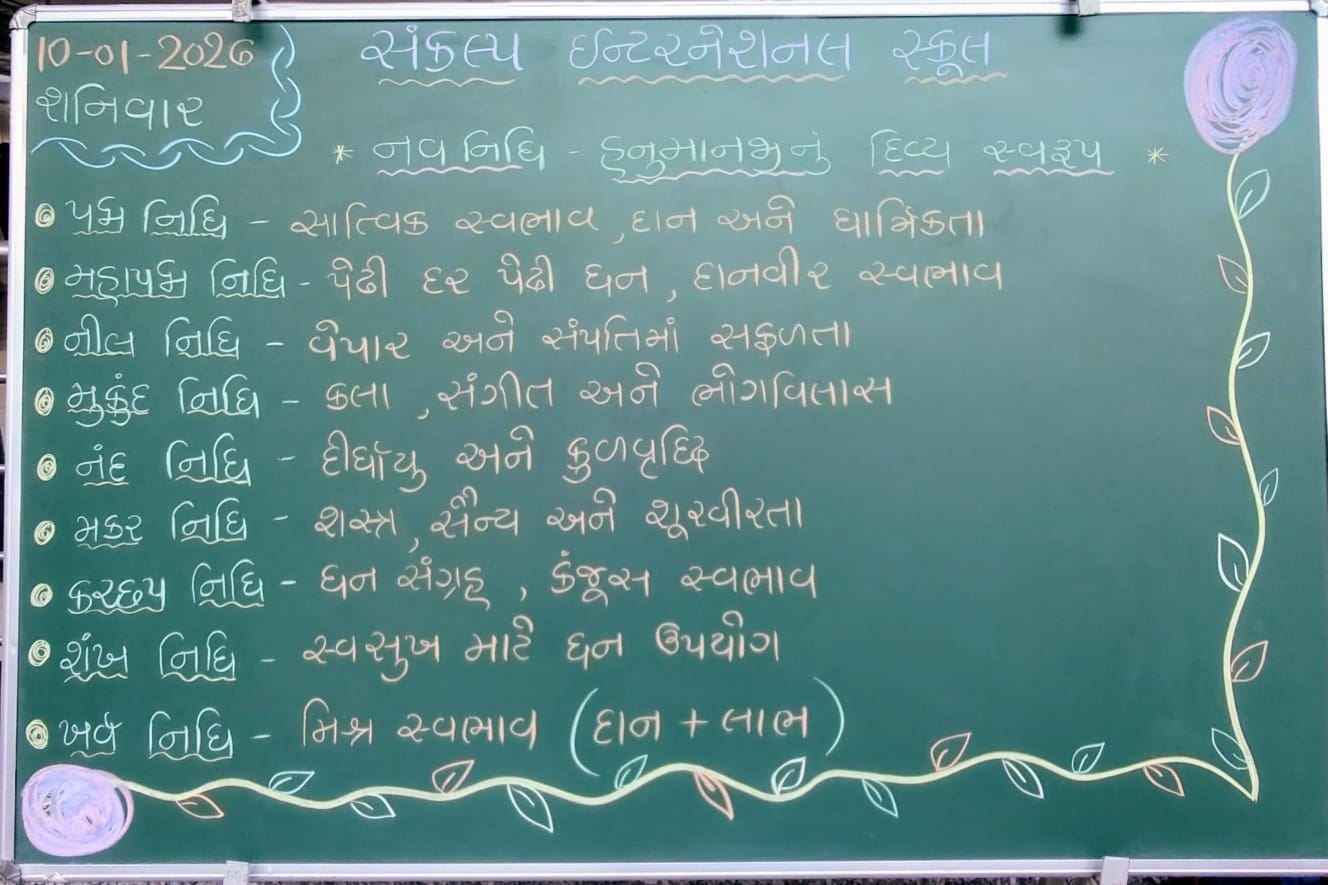 10-01-2026
શનિવાર
સંકલ્પ ઇન્ટરનેશનલ સ્કૂલ
* નવ નિધિ - હનુમાનજીનું દિવ્ય સ્વરૂપ *
પદ્મ નિધિ - સાત્વિક સ્વભાવ, દાન અને ધાર્મિકતા
મહાપદ્મ નિધિ - પેઢી દર પેઢી ધન, દાનવીર સ્વભાવ
નીલ નિધિ - વેપાર અને સંપતિમાં સફળતા
મુકુંદ નિધિ - કલા, સંગીત અને ભોગવિલાસ
નંદ નિધિ - દીર્ઘાયુ અને કુળવૃધ્ધિ
મકર નિધિ - શસ્ત્ર, સૈન્ય અને શૂરવીરતા
કચ્છપ નિધિ - ધન સંગ્રહ, કંજૂસ સ્વભાવ
શંખ નિધિ - સ્વસુખ માટે ધન ઉપયોગ
ખર્વ નિધિ - મિશ્ર સ્વભાવ (દાન + લાભ)